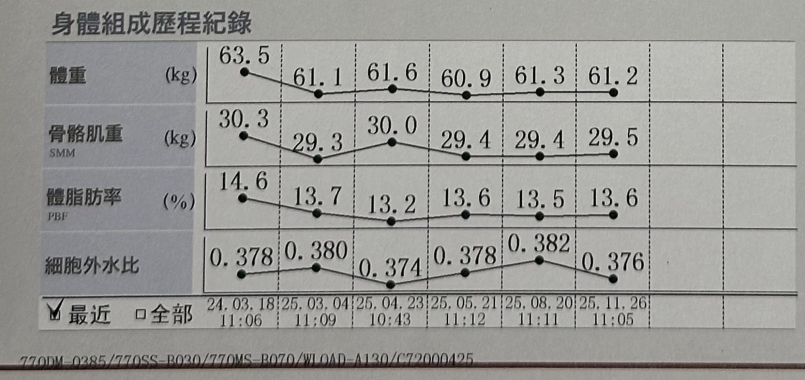 身體組成歷程紀錄
體重 (kg) 63.5 61.1 61.6 60.9 61.3 61.2
骨骼肌重 (kg) 30.3 29.3 30.0 29.4 29.4 29.5
SMM
體脂肪率 (%) 14.6 13.7 13.2 13.6 13.5 13.6
PBF
細胞外水比 0.378 0.380 0.374 0.378 0.382 0.376
最近 全部 24.03.18 25.03.04 25.04.23 25.05.21 25.08.20 25.11.26
11:06 11:09 10:43 11:12 11:11 11:05
770DM-0385/770SS-B030/770MS-B070/WLOAD-A130/C72000425